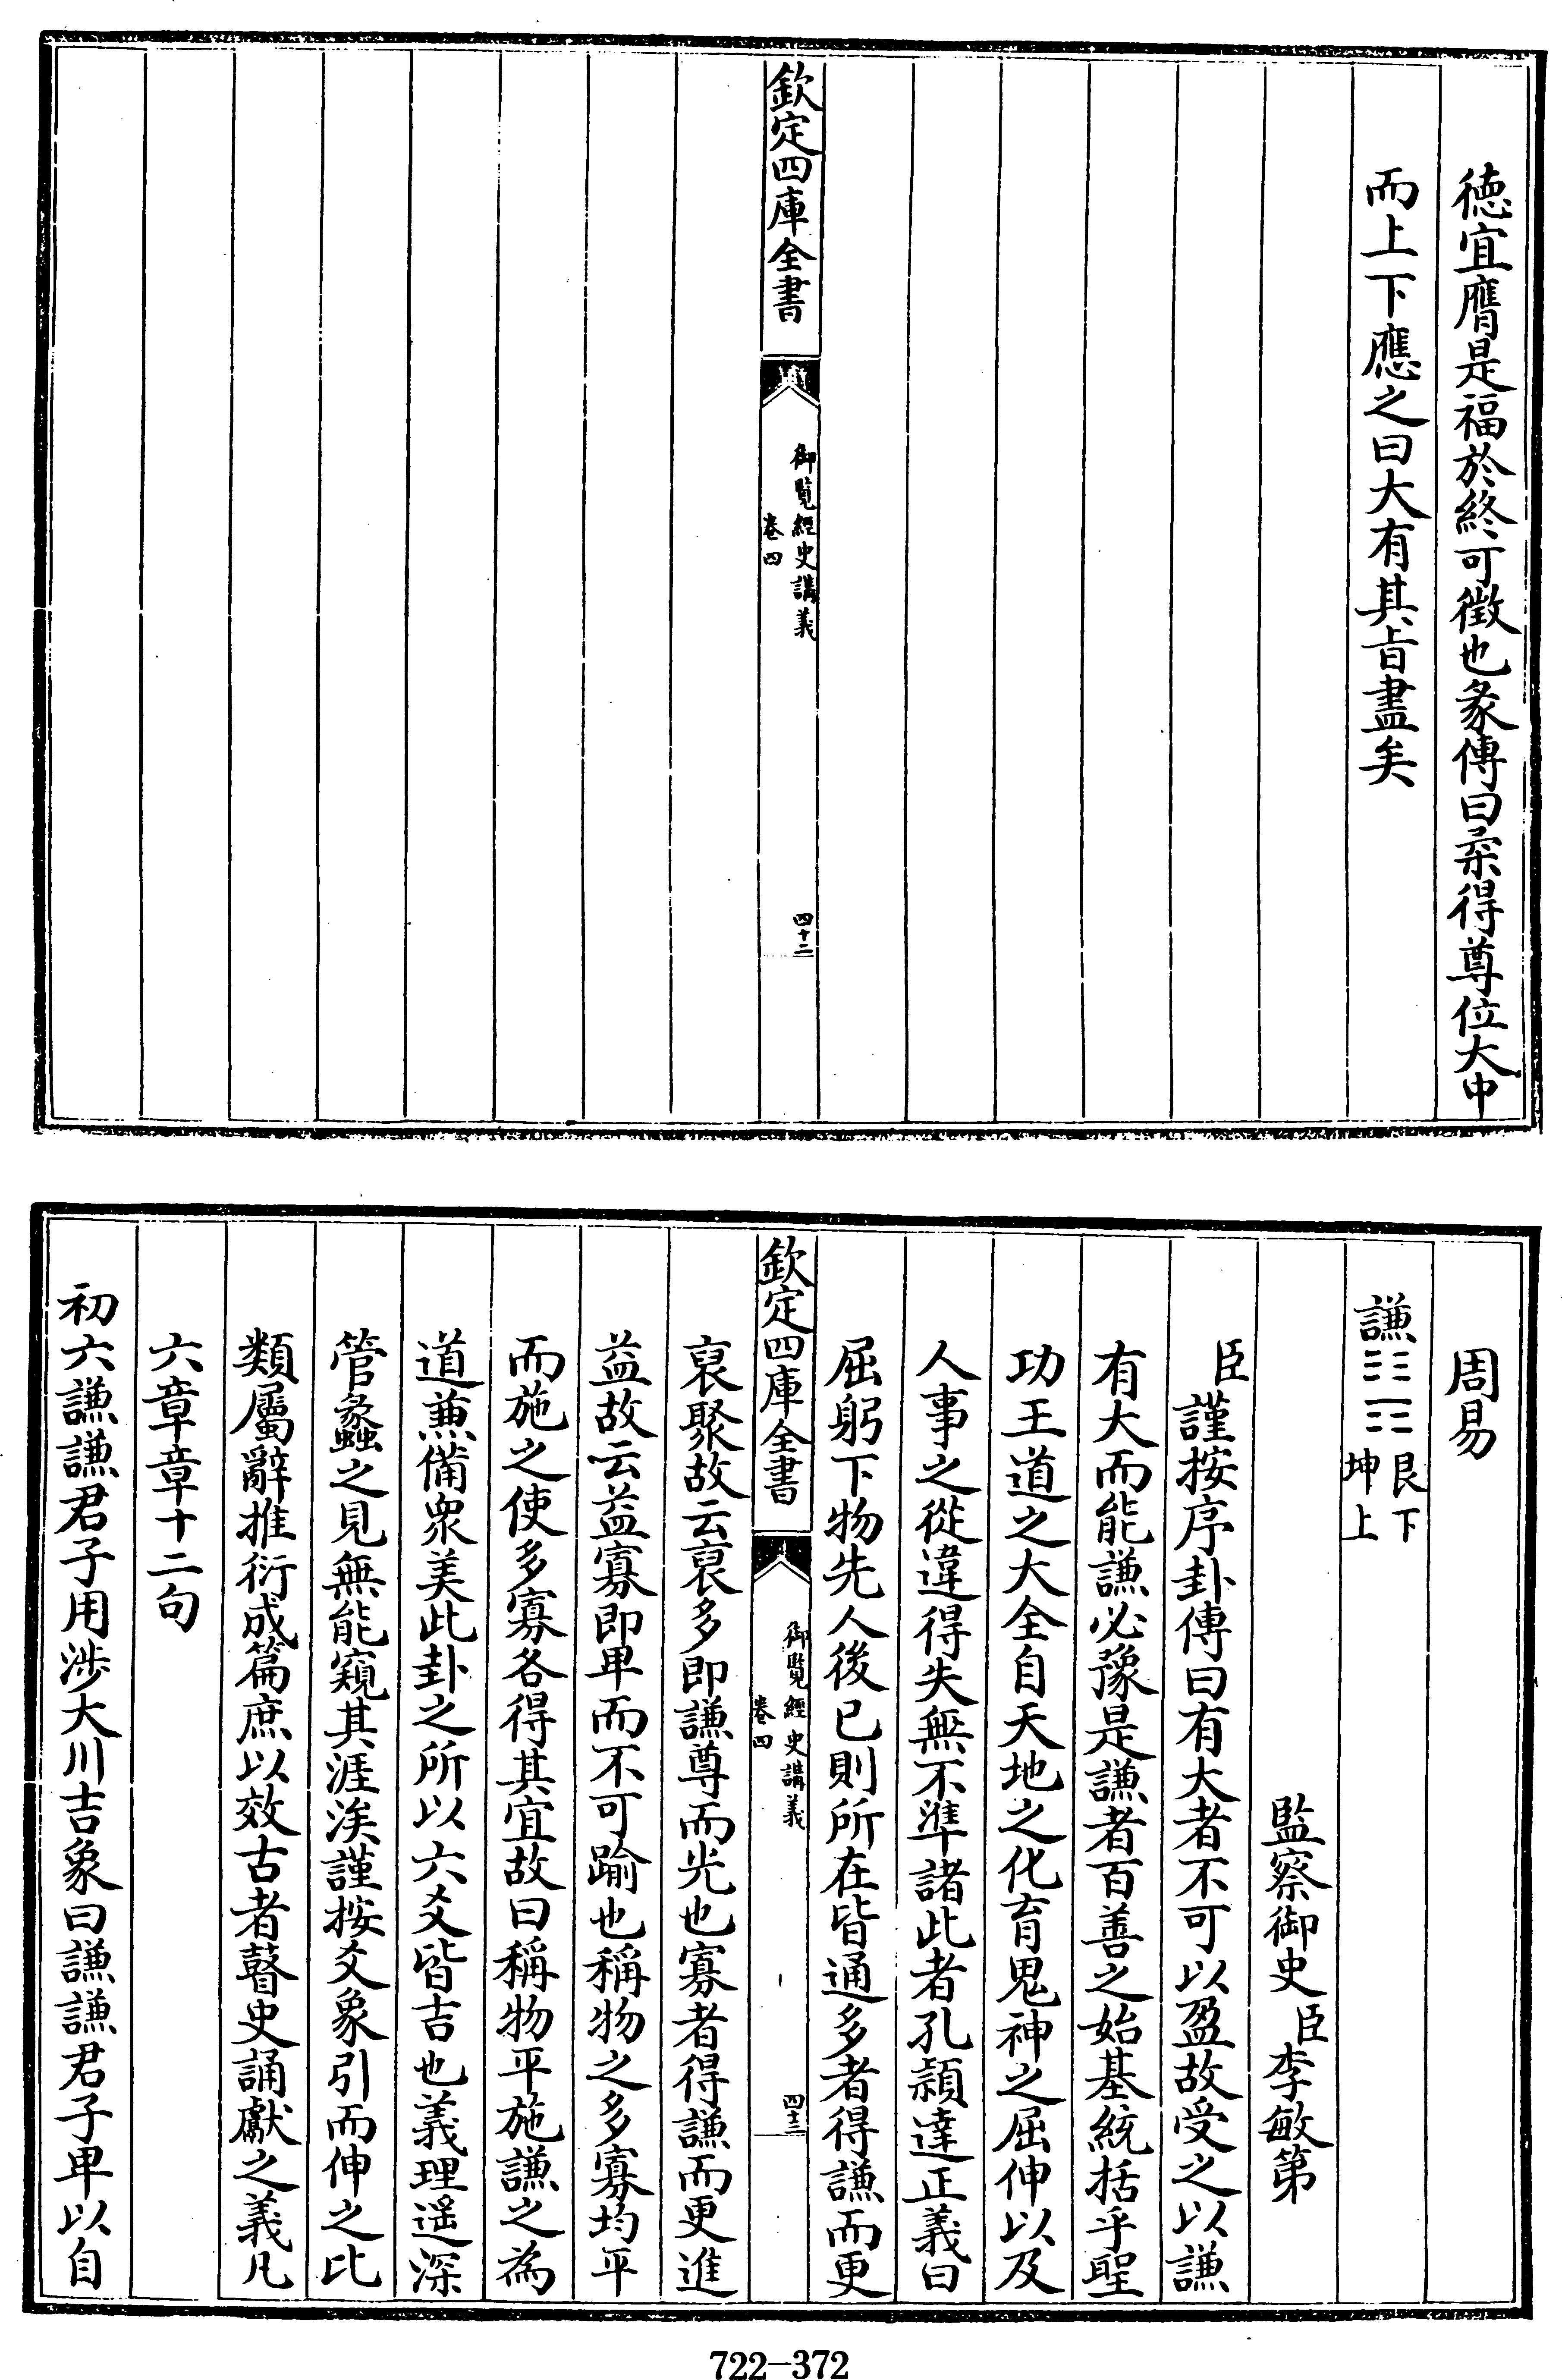 德宜膺是福於終可徵也彖傳曰柔得尊位大中
而上下應之曰大有其旨盡矣
欽定四庫全書
御覽經史講義
卷四
四十二
周易
謙䷎艮下坤上
監察御史臣李敏第
臣謹按序卦傳曰有大者不可以盈故受之以謙
有大而能謙必豫是謙者百善之始基統括乎聖
功王道之大全自天地之化育鬼神之屈伸以及
人事之從違得失無不準諸此者孔穎達正義曰
屈躬下物先人後已則所在皆通多者得謙而更
欽定四庫全書
御覽經史講義
卷四
四十三
裒聚故云裒多即謙尊而光也寡者得謙而更進
益故云益寡即卑而不可踰也稱物之多寡均平
而施之使多寡各得其宜故曰稱物平施謙之為
道兼備衆美此卦之所以六爻皆吉也義理遥深
管蠡之見無能窺其涯涘謹按爻象引而伸之比
類屬辭推衍成篇庶以效古者瞽史誦獻之義凡
六章章十二句
初六謙謙君子用涉大川吉象曰謙謙君子卑以自
722-372